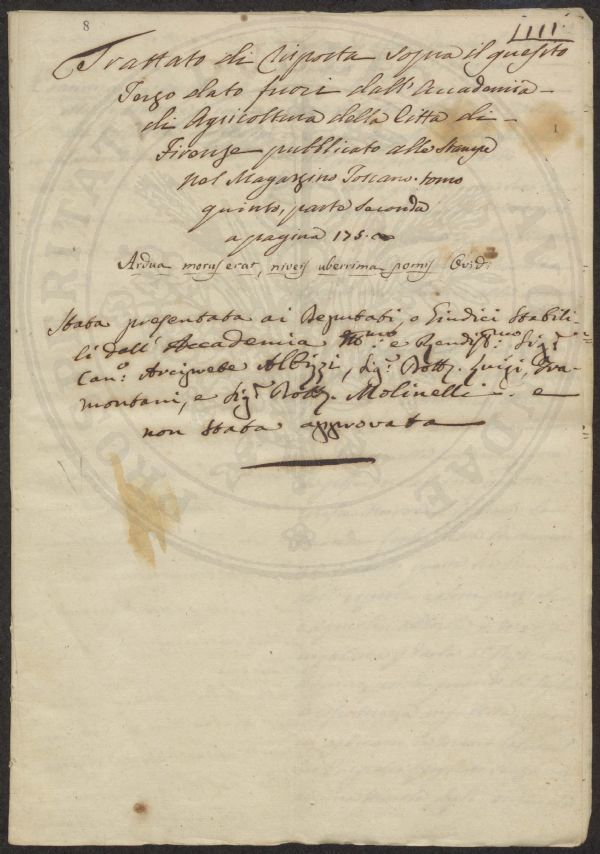 8
1111.
Trattato di risposta sopra il quesito
Terzo dato fuori dall'Accademia
di Agricoltura della Citta di
Firenze pubblicato alle stampe
nel Magazzino Toscano. tomo
quinto, parte seconda
a pagina 175.
1
Ardua morus erat, niveis uberrima pomis Ovid:
Stata presentata ai Deputati o Giudici Stabili
li dall'Accademia Ill:mo e Rendis:mo Sig:r
Can:o Arciprete Albizzi, Sig:r Dott: Luigi, Tra-
montani, e Sig:r Dott: Molinelli: e
non stata approvata
PROSPERITATI